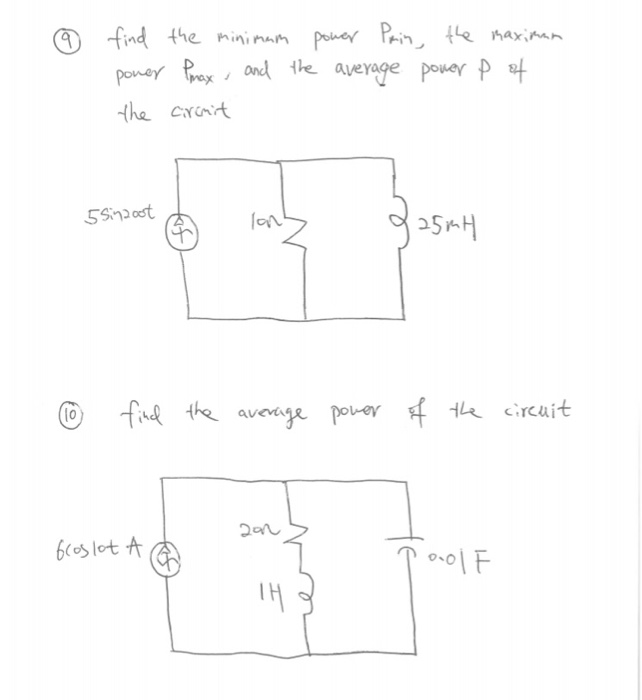 ⑨ find the minimum power Pmin, the maximum
power Pmax, and the average power P of
the circuit
5sin200t
10Ω
25mH
⑩ find the average power of the circuit
6cos10t A
20Ω
1H
0.01F